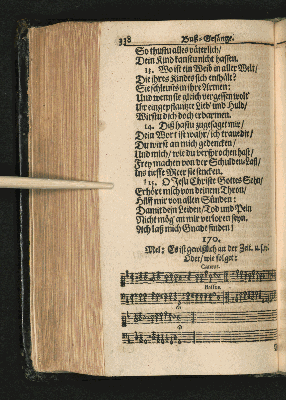 338 Buß-Gesänge.
So thustu alles väterlich/
Dein Kind kanstu nicht hassen.
13. Wo ist ein Weib in aller Welt/
Die ihres Kindes sich enthält?
Sie schleusts in ihre Armen:
Und wenn sie gleich vergessen wolt
Ihr eingepflantzte Lieb' und Huld/
Wirstu dich doch erbarmen.
14. Diß hastu zugesaget mir/
Dein Wort ist wahr/ ich trau dir/
Du wirst an mich gedencken/
Und mich/ wie du versprochen hast/
Frey machen von der Schulden-Last/
Ins tieffe Meer sie sencken.
15. O Jesu Christe Gottes Sohn/
Erhört mich von deinem Thron/
Hilff mir von allen Sünden:
Damit dein Leiden/ Tod und Pein
Nicht mög' an mir verloren seyn.
Ach laß mich Gnade finden!
170.
Mel: Es ist gewißlich an der Zeit. u.s.w.
Oder/ wie folget:
Cantus.
Bassus.